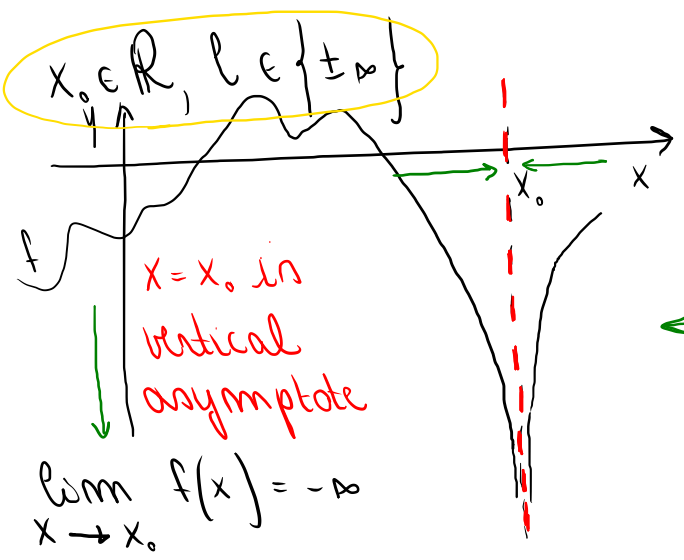 x₀ ∈ ℝ, l ∈ {±∞}
y
x₀
x
f
x = x₀ is
vertical
asymptote
lim f(x) = -∞
x → x₀